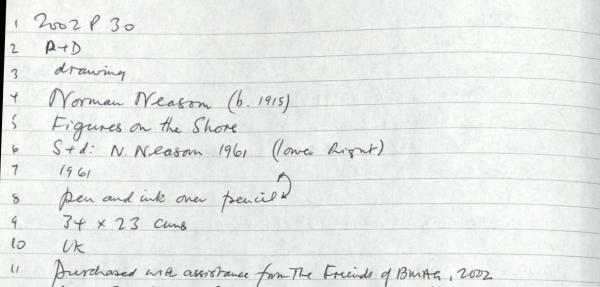 1 2002 P 30
2 A+D
3 drawing
4 Norman Neasom (b. 1915)
5 Figures on the Shore
6 S+d: N. Neasom 1961 (lower Right)
7 1961
8 pen and ink over pencil
9 34 x 23 cms
10 UK
11 Purchased with assistance from The Friends of BMAG, 2002